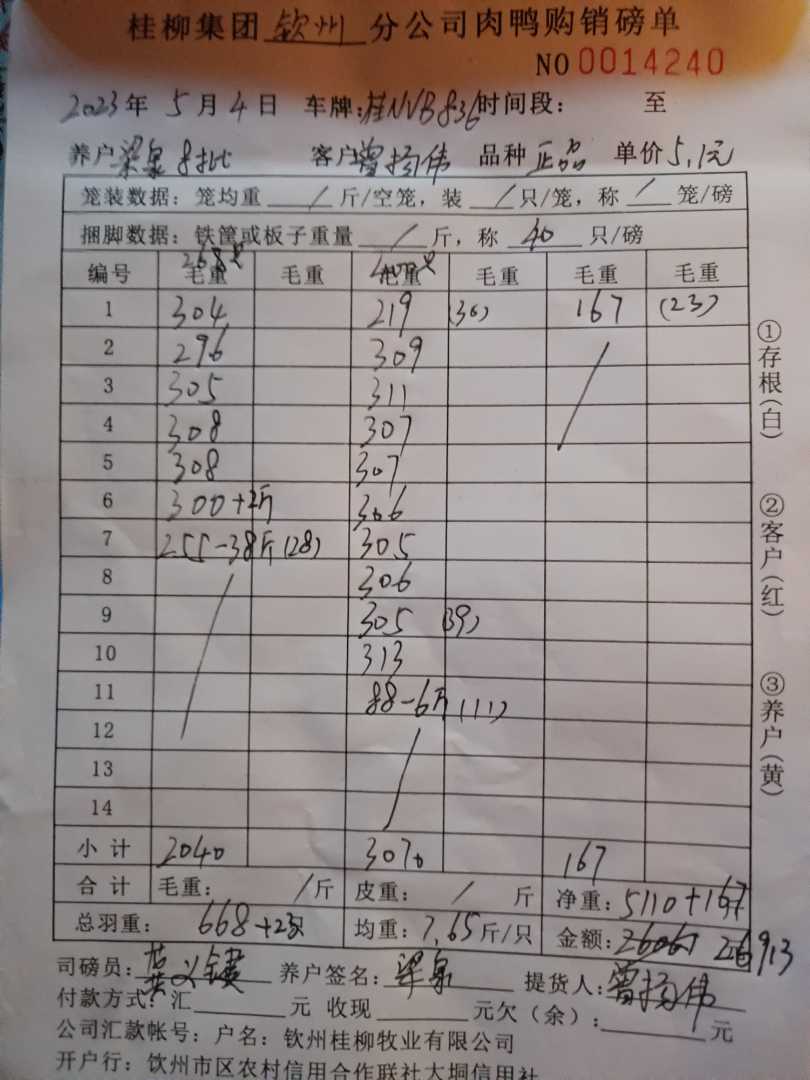 桂柳集团 钦州 分公司肉鸭购销磅单
NO 0014240
2023年 5月4日 车牌:桂NVB836 时间段: 至
养户 梁泉 8批 客户 曾扬伟 品种 正品 单价 5.1元
笼装数据: 笼均重 / 斤/空笼, 装 / 只/笼, 称 / 笼/磅
捆脚数据: 铁筐或板子重量 / 斤, 称 40 只/磅
268只 400只
编号 毛重 毛重 毛重 毛重 毛重 毛重
1 304 219 (30) 167 (23)
2 296 309
3 305 311
4 308 307
5 308 307
6 300+2斤 306
7 255-38斤 (28) 305
8 306
9 305 (39)
10 313
11 88-6斤 (11)
12
13
14
小计 2040 3070 167
合计 毛重: /斤 皮重: / 斤 净重: 5110+167斤
总羽重: 668+23只 均重: 7.65斤/只 金额: 26061 26913
司磅员: 养户签名: 梁泉 提货人: 曾扬伟
付款方式: 汇 元 收现 元欠(余): 元
公司汇款帐号: 户名: 钦州桂柳牧业有限公司
开户行: 钦州市区农村信用合作联社大垌信用社
①存根(白)
②客户(红)
③养户(黄)